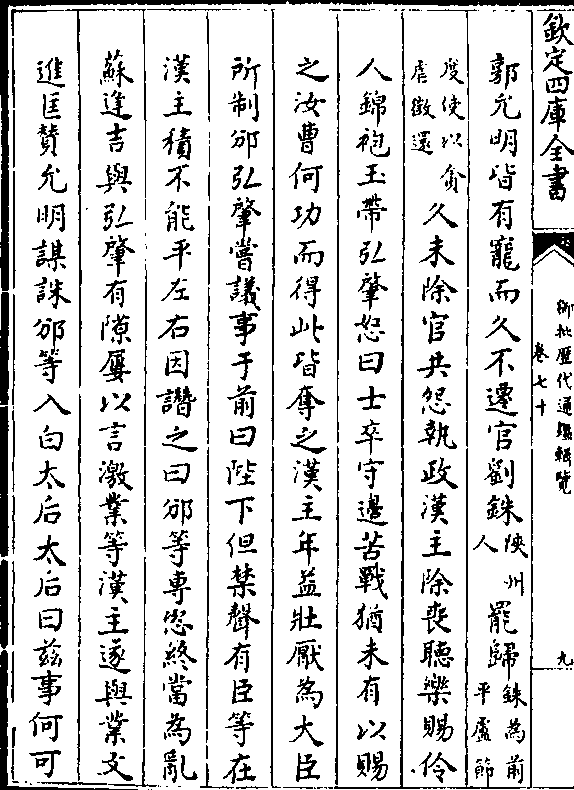 欽定四庫全書
御批歷代通鑑輯覽
卷七十
九
郭允明皆有寵而久不遷官劉銖陝州人罷歸銖為前平盧節
度使以貪虐徵還久未除官共怨執政漢主除喪聽樂賜伶
人錦袍玉帶弘肇怒曰士卒守邊苦戰猶未有以賜
之汝曹何功而得此皆奪之漢主年益壯厭為大臣
所制邠弘肇嘗議事于前曰陛下但禁聲有臣等在
漢主積不能平左右因譖之曰邠等專恣終當為亂
蘇逢吉與弘肇有隙屢以言激業等漢主遂與業文
進匡贊允明謀誅邠等入白太后太后曰茲事何可